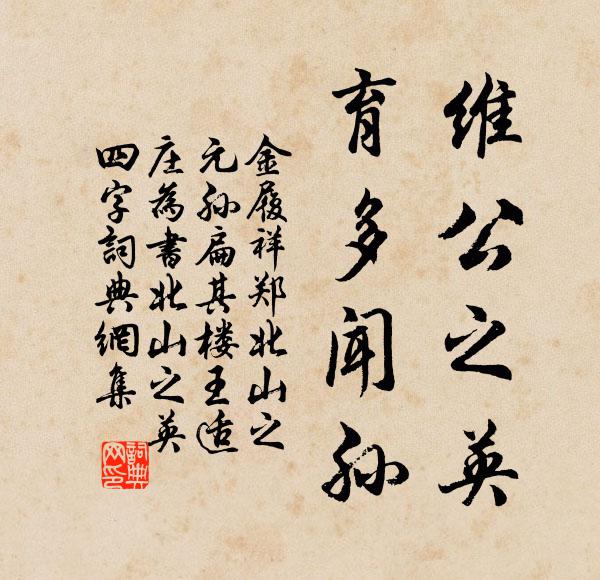 维公之英
育多闻孙
金履祥郑北山之
元孙扁其楼王适
庄为书北山之英
四字詞典網集
詞典网印